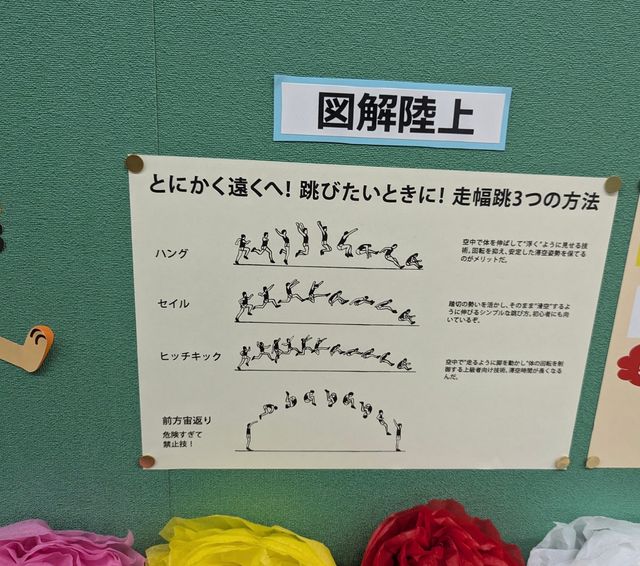 図解陸上
とにかく遠くへ! 跳びたいときに! 走幅跳3つの方法
ハング
空中で体を伸ばして"浮く"ように見せる技
術。回転を抑え、安定した滞空姿勢を保てる
のがメリットだ。
セイル
踏切の勢いを活かし、そのまま"滑空"するよ
うに伸びるシンプルな跳び方。初心者にも向
いているぞ。
ヒッチキック
空中で"走るように脚を動かし"体の回転を制
御する上級者向け技術。滞空時間が長くなる
んだ。
前方宙返り
危険すぎて
禁止技！